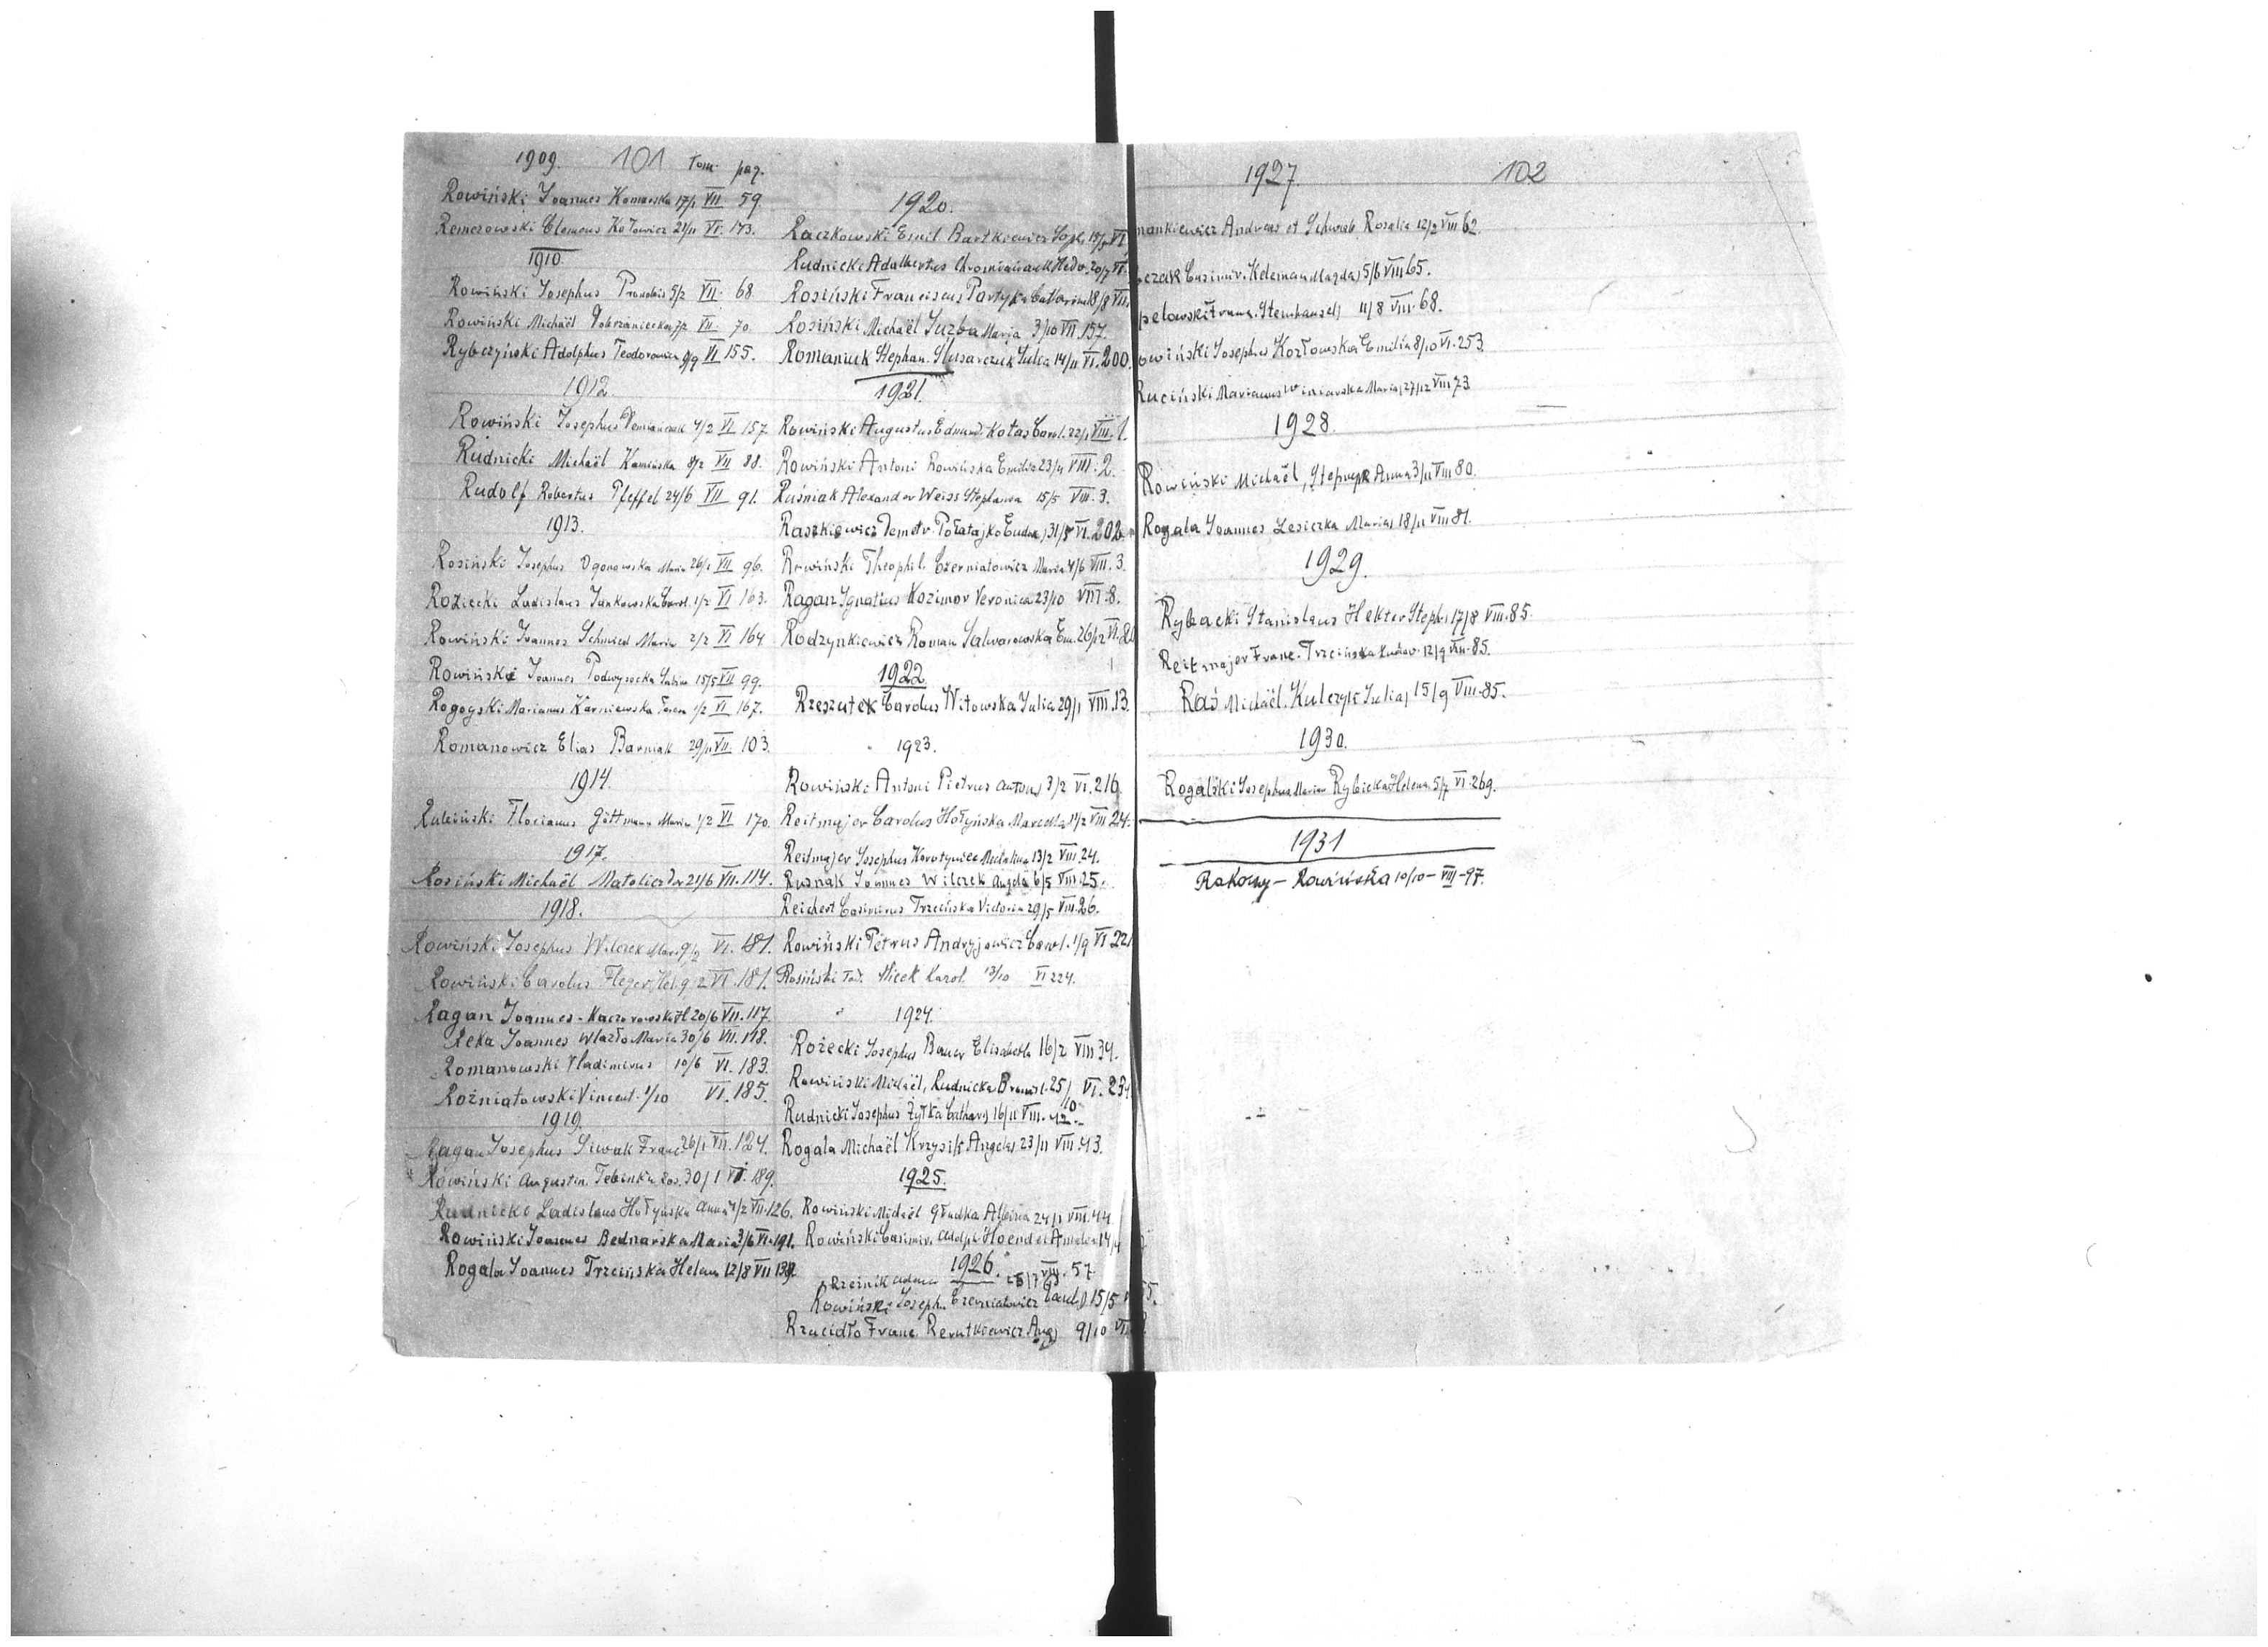 1909. 101 tom pag.
Rowiński Joannes Komarska 17/1 VII 59.
Remerowski Clemens Kotowicz 21/11 VI. 173.
1910.
Rowiński Josephus 5/2 VII. 68
Rowiński Michaël Dobrzaniecka VII. 70.
Rybczyński Adolphus Teodorowicz 9/9 VI 155.
1912
Rowiński Josephus 4/2 VI 157
Rudnicki Michaël Kamińska 8/2 VII 88.
Rudolf Robertus Pfeffel 24/6 VII 91.
1913.
Rosiński Josephus Ogonowska Maria 26/1 VII 96.
Roziecki Ladislaus Jankowska Carol. 1/2 VI 163.
Rowiński Joannes Schmied Maria 2/2 VI 164
Rowiński Joannes Podwysocka Sabina 15/5 VII 99.
Rogoyski Marianus Karniewska Teren 1/2 VI 167.
Romanowicz Elias Barniak 29/11 VII 103.
1914.
Ruleiński Florianus Göttmann Maria 1/2 VI 170.
1917.
Rosiński Michaël 21/6 VII. 114.
1918.
Rowiński Josephus Wilczek Mar. 9/2 VI. 181.
Rowiński Carolus Fleger Hel. 9/2 VI. 181.
Ragan Joannes - Kaczorowska H 20/6 VII. 117.
Reka Joannes Wlazło Maria 30/6 VII. 118.
Romanowski Vladimirus 10/6 VI. 183.
Rożniatowski Vincent. 1/10 VI. 185.
1919.
Ragan Josephus Siwak Franc 26/1 VII. 124.
Rowiński Augustin. Tebinka Ros. 30/1 VI. 189.
Rudnicki Ladislaus Hołyńska Anna 4/2 VII. 126.
Rowiński Joannes Bednarska Maria 3/6 VI. 191.
Rogala Joannes Trzcińska Helena 12/8 VII
1920.
Raczkowski Emil Bartkiewicz Soph. VI
Rudnicki Adalbertus Hedv. 20/7 VI.
Rosiński Franciscus Partyka Catharina 8/8 VII.
Rosiński Michaël Juzba Maria 3/10 VII. 157.
Romaniuk Stephan. Ślusarczuk Julia 14/11 VI. 200.
1921.
Rowiński Augustus Edmund. Kotas Carol. 22/1 VIII. 1.
Rowiński Antoni Rowińska Emilia 23/4 VIII. 2.
Ruśniak Alexander Weiss Stephania 15/5 VIII. 3.
Raszkiewicz Demetr. Połatajko Eudox) 31/5 VI. 202
Rowiński Theophil. Czerniatowicz Maria 4/6 VIII. 3.
Ragan Ignatius Kozimor Veronica 23/10 VIII. 8.
Rodzynkiewicz Roman Salwarowska Em. 26/12 VI. 21
1922
Rzeszutek Carolus Witowska Julia 29/1 VIII. 13.
1923.
Rowiński Antoni Pietrus Anton) 3/2 VI. 216.
Reitmajer Carolus Hołyńska Marcella 11/2 VIII 24.
Reitmajer Josephus Korotyniec Michalina 13/2 VIII. 24.
Rusnak Joannes Wilczek Angela 6/5 VIII. 25.
Reichert Casimirus Trzcińska Victoria 29/5 VIII. 26.
Rowiński Petrus Andryjowicz Carol. 1/9 VI 221
Rosiński Tad. Micek Karol. 13/10 VI 224.
1924.
Rożecki Josephus Bauer Elisabetha 16/2 VIII 34.
Rowiński Michaël, Rudnicka Bronisl. 25/10 VI. 234
Rudnicki Josephus Żyłka Cathar) 16/11 VIII. 42.
Rogala Michaël Krzysik Angela) 23/11 VIII. 43.
1925.
Rowiński Michaël Gładka Albina 24/1 VIII. 44
Rowiński Casimir. Adolph Hoendel Amalia 14/4
1926.
Rzeźnik Adam VIII. 57
Rowiński Joseph. Czerniatowicz Carol) 15/5 55.
Rzucidło Franc. Rerutkiewicz Ang) 9/10 VI
1927. 102
mankiewicz Andreas et Schwab Rosalia 12/2 VIII 62.
czak Casimir. Keleman Magda) 5/6 VIII 65.
pelowski Franc. Stenhansel) 11/8 VIII. 68.
owiński Josephus Kozłowska Emilia 8/10 VI. 253.
Ruciński Marianus Winiarska Maria) 27/12 VIII 73
1928.
Rowiński Michaël, Anna 3/11 VIII 80.
Rogala Joannes Lesiczka Maria) 18/11 VIII 81.
1929.
Rybacki Stanislaus Hekter Steph.) 17/8 VIII. 85.
Reitmajer Franc. Trzcińska Ludov. 12/9 VIII. 85.
Raś Michaël. Kulczyk Julia) 15/9 VIII. 85.
1930.
Rogalski Josephus Marian Rybicka Helena 5/7 VI. 269.
1931
Rakowy - Rowińska 10/10 - VIII - 97.